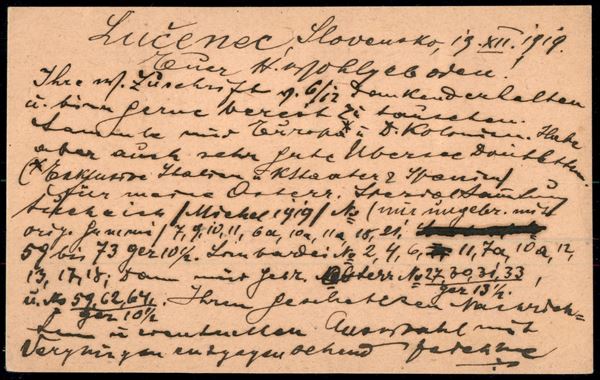 Lučenec, Slovensko, 19. XII. 1919.
Euer H. wohlgeboren!
Ihre w/. Zuschrift v. 6/12 dankend erhalten
u. bin gerne bereit zu tauschen.
Sammle nur Europa* u. D. Kolonien. Habe
aber auch sehr gute Übersee Doubletten.
(* Exklusive Italien Kstaaten & Spanien)
Für meine Österr. Spezial Sammlung
suche ich (Michel 1919) No (nur ungebr. mit
orig. Gummi) 7, 9, 10, 11, 6a, 10a, 11a, 18, 21,
59 bis 73 gez 10½. Lombardei No 2, 4, 6, 11, 7a, 10a, 12,
13, 17, 18; dann nur gebr. Österr No 27, 30, 31, 33,
gez 13½
u. No 59, 62, 64,
gez 10½
Ihren geschätzten Nachrich-
ten u. eventuellen Auswahl mit
Vergnügen entgegensehend zeichne